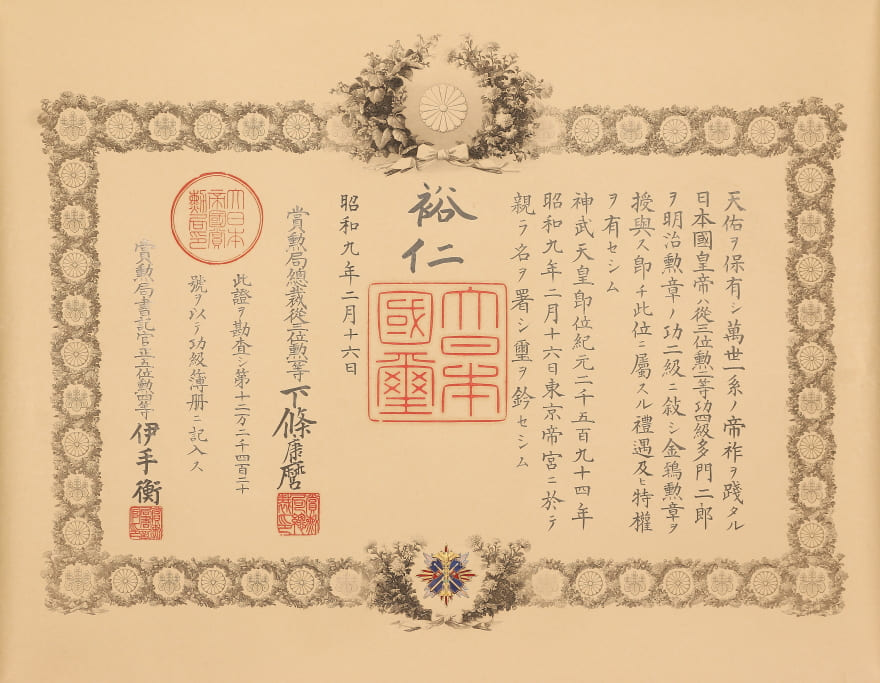 天佑ヲ保有シ萬世一系ノ帝祚ヲ踐タル
日本國皇帝ハ從三位勲二等功四級多門二郎
ヲ明治勲章ノ功二級ニ敍シ金鵄勲章ヲ
授與ス卽チ此位ニ屬スル禮遇及ヒ特權
ヲ有セシム
神武天皇卽位紀元二千五百九十四年
昭和九年二月十六日東京帝宮ニ於テ
親ラ名ヲ署シ璽ヲ鈐セシム
裕仁
大日本
國璽
昭和九年二月十六日
賞勲局總裁從三位勲一等下條康麿
此證ヲ勘査シ第十二万二千四百二十
號ヲ以テ功級簿册ニ記入ス
大日本
帝國賞
勲局印
賞勲局書記官正五位勲四等伊手衡